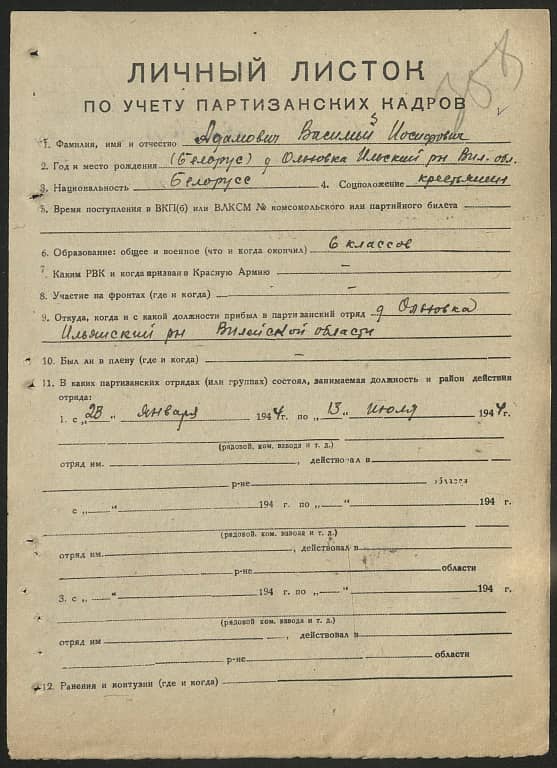 358
ЛИЧНЫЙ ЛИСТОК
ПО УЧЕТУ ПАРТИЗАНСКИХ КАДРОВ
1. Фамилия, имя и отчество Адамович Василий Иосифович
2. Год и место рождения (Белорус) д Ольковка Ильский рн Вил. обл.
3. Национальность Белорусс 4. Соцположение крестьянин
5. Время поступления в ВКП(б) или ВЛКСМ № комсомольского или партийного билета —
6. Образование: общее и военное (что и когда окончил) 6 классов
7. Каким РВК и когда призван в Красную Армию —
8. Участие на фронтах (где и когда) —
9. Откуда, когда и с какой должности прибыл в партизанский отряд д Ольковка
Ильянский рн Вилейской области
10. Был ли в плену (где и когда) —
11. В каких партизанских отрядах (или группах) состоял, занимаемая должность и район действия
отряда:
1. с „23" января 1944 г. по „13" июля 1944 г.
(рядовой, ком. взвода и т. д.)
отряд им. , действовал в
р-не области
с „ " 194 г. по „ " 194 г.
(рядовой, ком. взвода и т. д.)
отряд им. , действовал в
р-не области
3. с „ " 194 г. по „ " 194 г.
(рядовой, ком. взвода и т. д.)
отряд им , действовал в
р-не области
12. Ранения и контузии (где и когда)